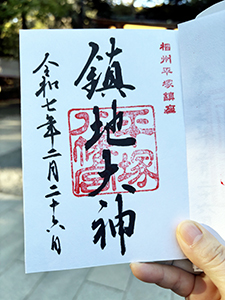 相州平塚鎮座
鎮地大神
平塚八幡宮
令和七年二月二十六日